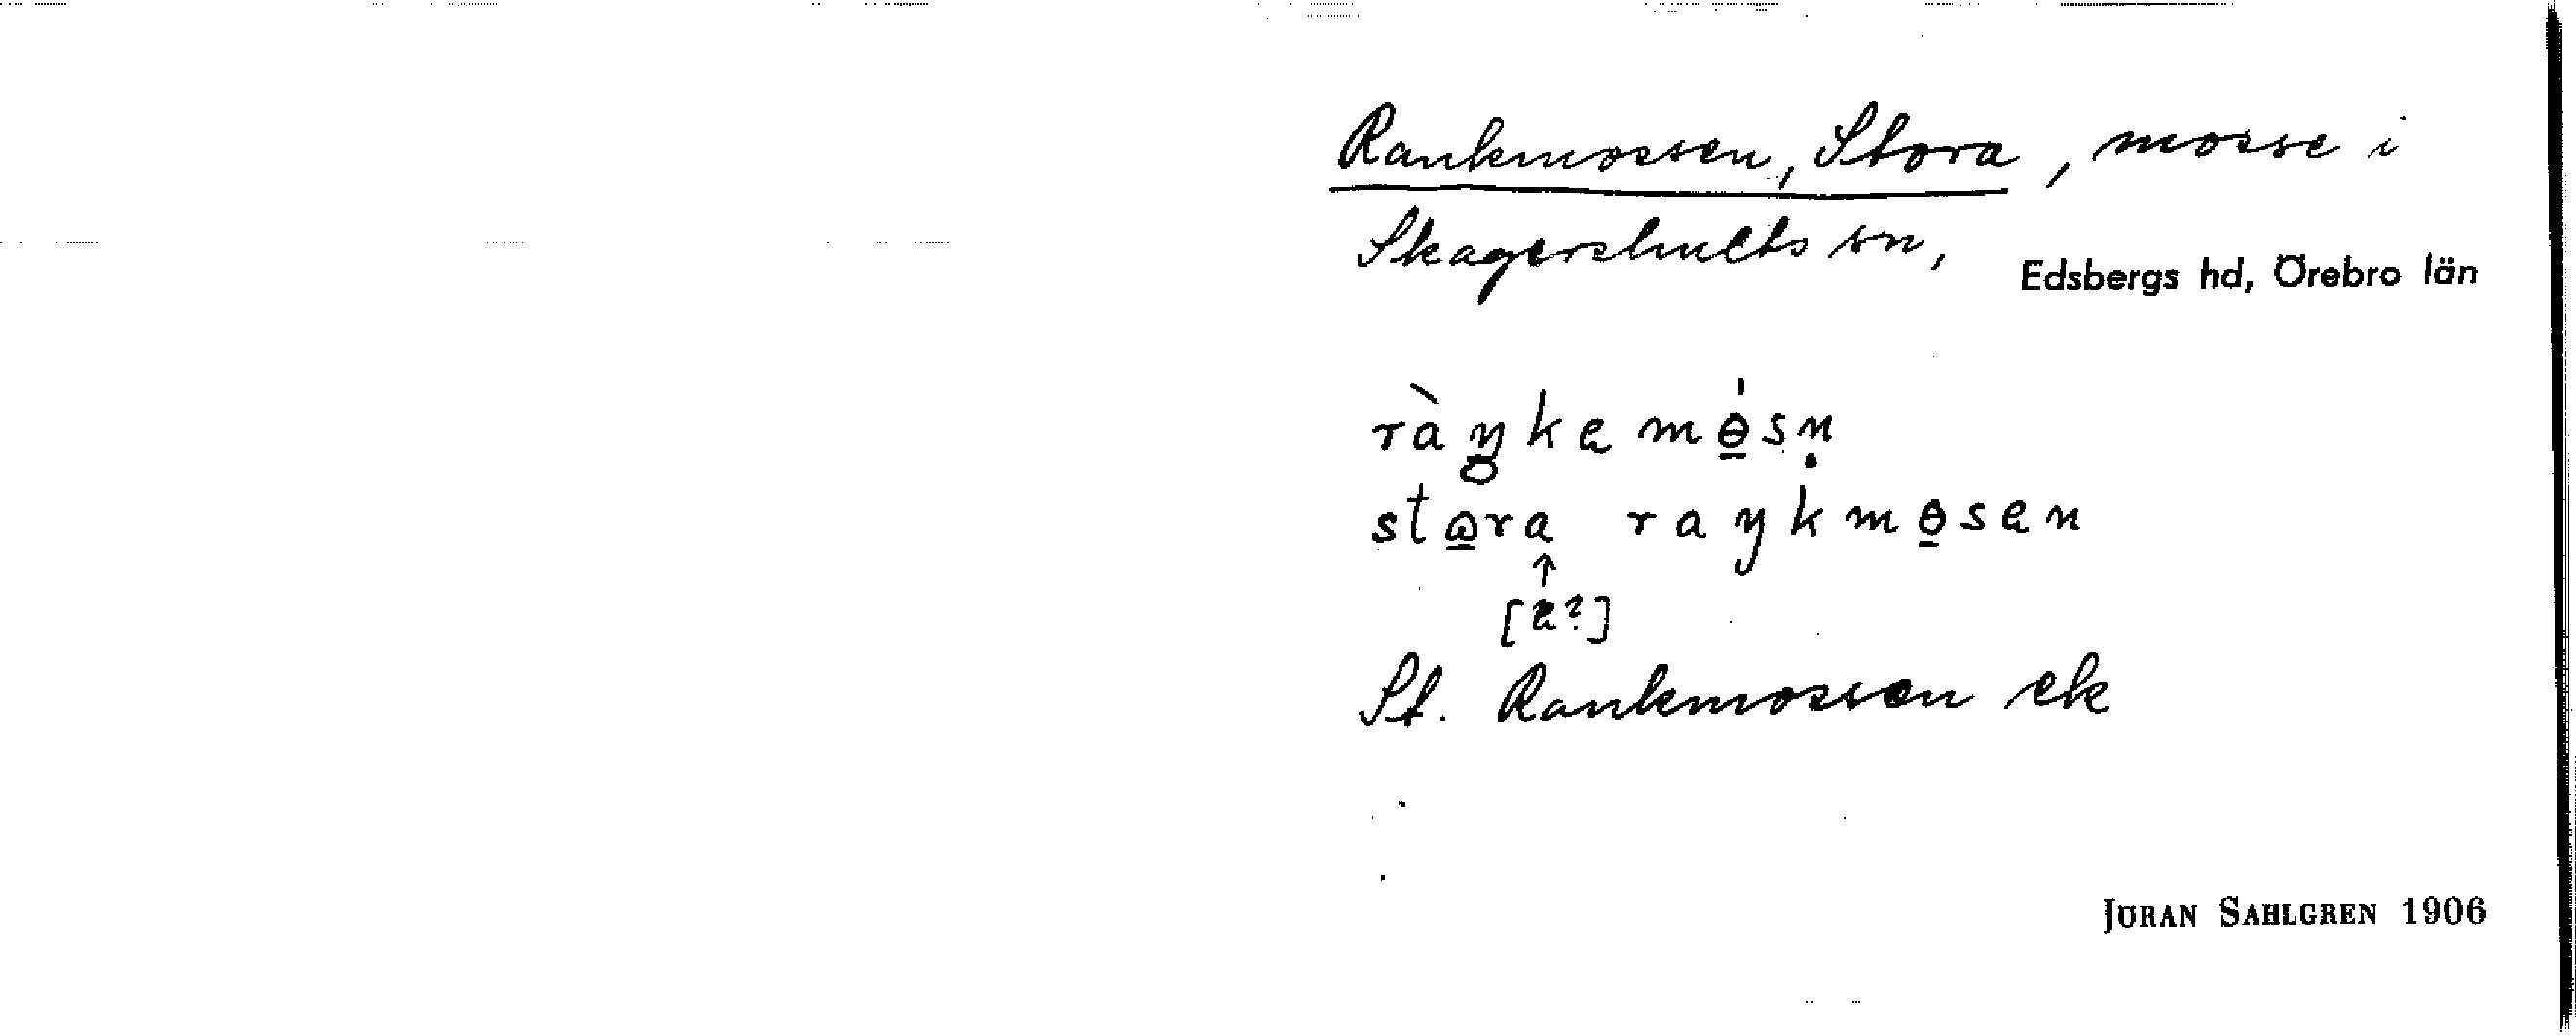 Rankmossen, Stora, mosse i
Skagershults sn, Edsbergs hd, Örebro län
ràŋkemɵ̠́sn̥
stω̠ra raŋkmɵ̠sen
↑
[e?]
St. Rankmossen ek
JÖRAN SAHLGREN 1906